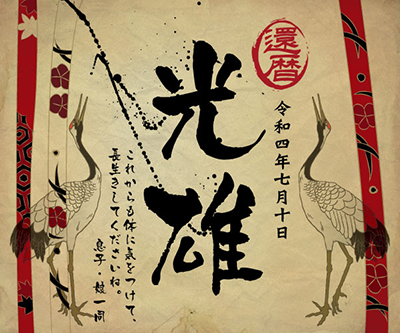 還暦
令和四年七月十日
光雄
これからも体に気をつけて、
長生きしてくださいね。
息子・娘一同